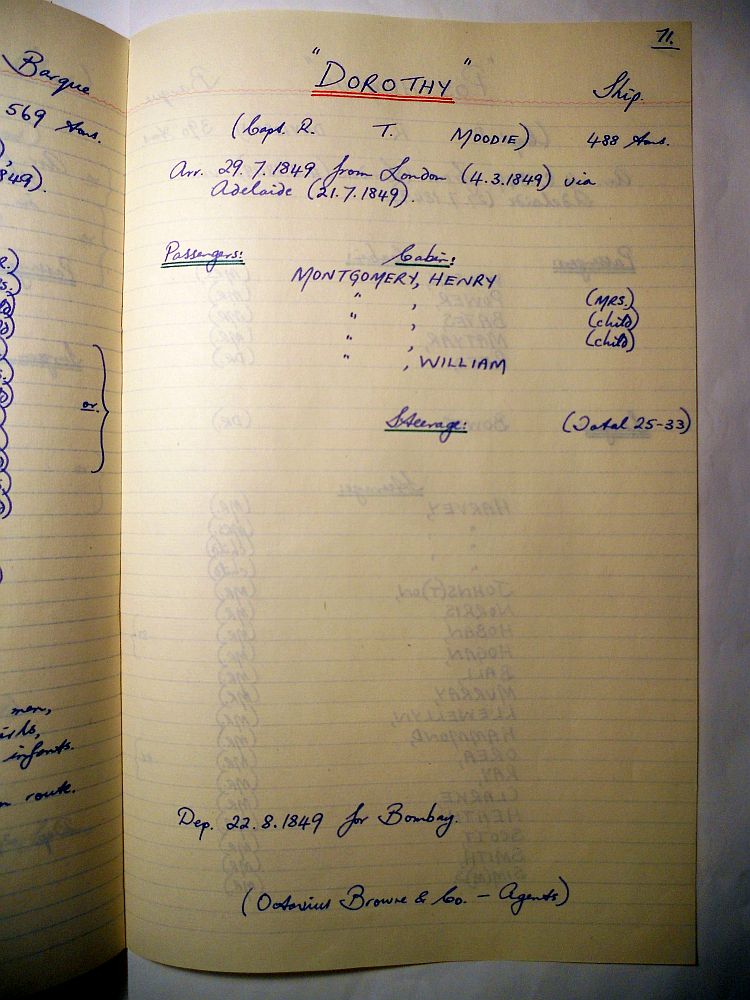 Barque
569 tons.
849).
or
men,
infants.
route.
71.
"DOROTHY" Ship.
(Capt. R. T. MOODIE) 488 tons.
Arr. 29.7.1849 from London (4.3.1849) via
Adelaide (21.7.1849).
Passengers: Cabin:
MONTGOMERY, HENRY
" , (MRS.)
" , (child)
" , (child)
" , WILLIAM
Steerage: (Total 25-33)
Dep. 22.8.1849 for Bombay.
(Octavius Browne & Co. - Agents)